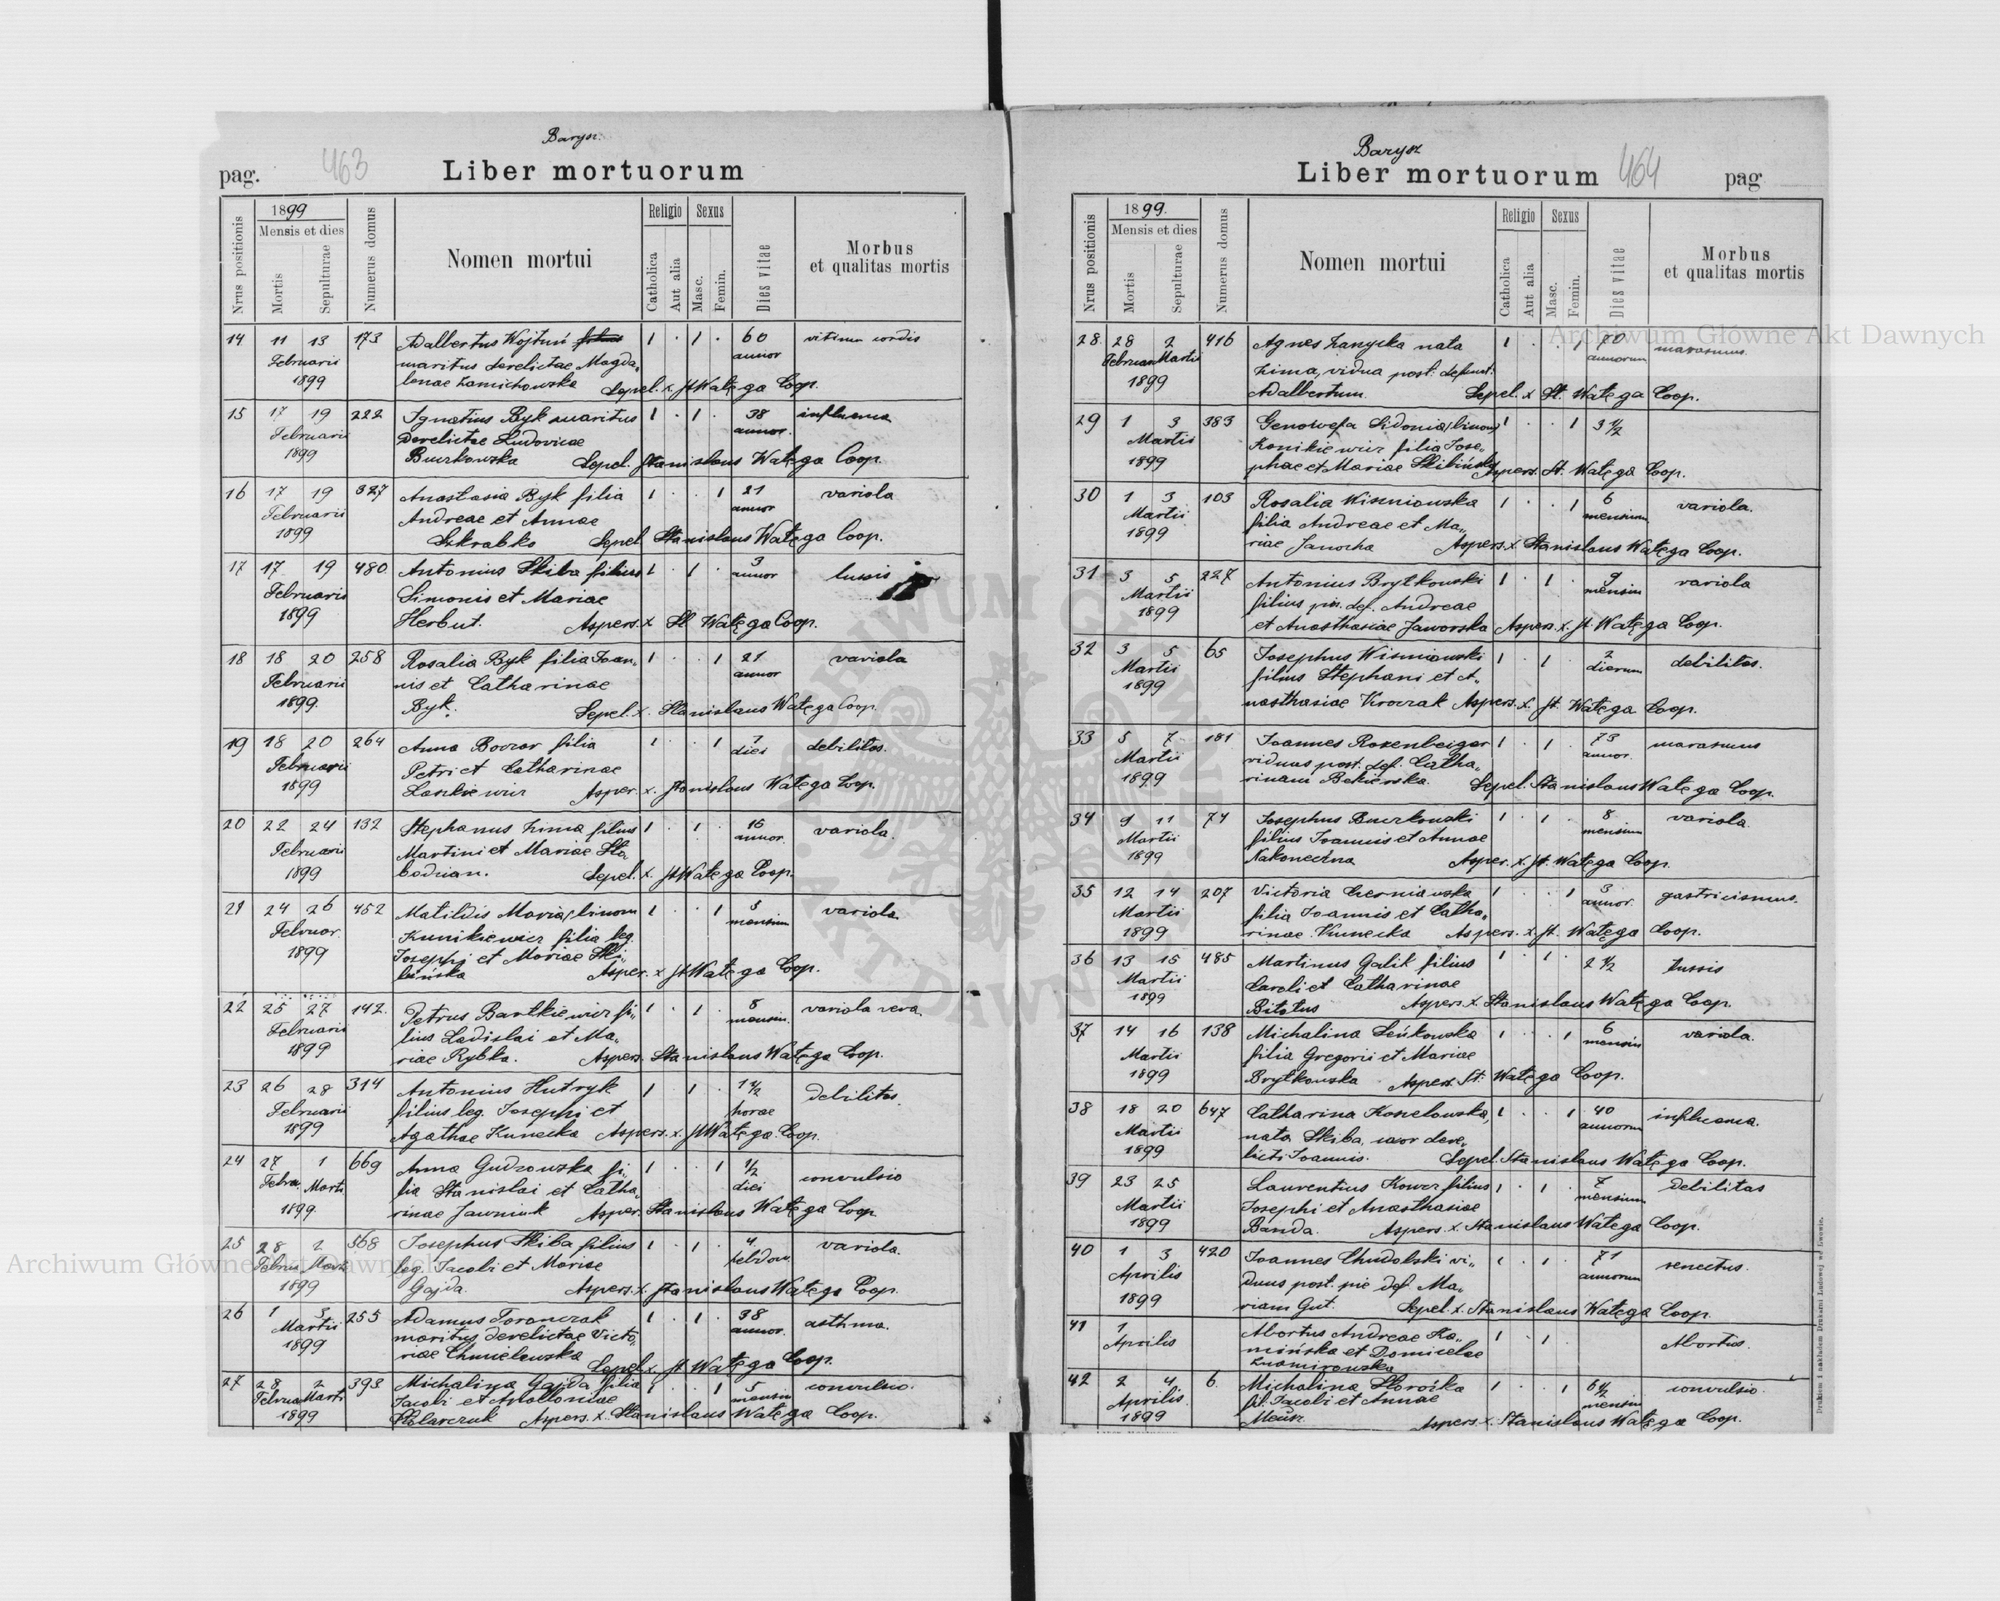 Barysz.
pag. 463 Liber mortuorum
Nrus positionis
1899
Mensis et dies
Mortis
Sepulturae
Numerus domus
Nomen mortui
Religio
Catholica
Aut alia
Sexus
Masc.
Femin.
Dies vitae
Morbus
et qualitas mortis
14 11 13 173 Adalbertus Wojtuń filius 1 · 1 · 60 vitium cordis
Februarii maritus derelictae Magda- annor
1899 lenae Zamichowska Sepel. x St Watęga Coop.
15 17 19 222 Ignatius Byk maritus 1 · 1 · 38 influenca
Februarii derelictae Ludovicae annor.
1899 Buczkowska Sepel. Stanislaus Watęga Coop.
16 17 19 327 Anastasia Byk filia 1 · · 1 21 variola
Februarii Andreae et Annae annor
1899 Szkrabko Sepel Stanislaus Watęga Coop.
17 17 19 480. Antonius Skiba filius 1 · 1 · 3 tussis
Februarii Simonis et Mariae annor
1899 Herbut. Aspers. x St Watęga Coop.
18 18 20 258 Rosalia Byk filia Joan- 1 · · 1 21 variola
Februarii nis et Catharinae annor
1899. Byk. Sepel. x. Stanislaus Watęga Coop.
19 18 20 264 Anna filia 1 · · 1 1 debilitas.
Februarii Petri et Catharinae diei
1899 Laszkiewicz Asper. x. Stanislaus Watęga Coop.
20 22 24 132 Stephanus Zima filius 1 · 1 · 16 variola.
Februarii Martini et Mariae Sło- annor.
1899 bodzian. Sepel. x St Watęga Coop.
21 24 26 452 Matildis Maria /binom 1 · · 1 3 variola
Februar. Kunikiewicz filia leg. mensium
1899 Josephi et Mariae Ski-
bińska Asper. x St Watęga Coop.
22 25 27 142. Petrus Bartkiewicz fi- 1 · 1 · 8 variola vera
Februarii lius Ladislai et Ma- mensiu.
1899 riae Rybka. Aspers. Stanislaus Watęga Coop.
23 26 28 314 Antonius Hutryk 1 1 · 1 1/2 debilitas.
Februarii filius leg. Josephi et horae
1899 Agathae Kunicka Aspers. x. St Watęga Coop.
24 27 1 669 Anna Gudzowska fi- 1 · · 1 1/2 convulsio
Febru. Marti lia Stanislai et Catha- diei
1899. rinae Jawniuk Asper. Stanislaus Watęga Coop.
25 28 2 568 Josephus Skiba filius 1 · 1 · 4 variola.
Februa. Marti leg. Jacobi et Mariae hebdom.
1899 Gajda. Aspers. x. Stanislaus Watęga Coop.
26 1 3 255 Adamus Toronczak 1 · 1 · 38 asthma.
Martii maritus derelictae Victo- annor.
1899 riae Chmielewska Sepel. x. St Watęga Coop.
27 28 2 393 Michalina Gajda filia 1 · · 1 5 convulsio.
Februa Marti Jacobi et Apolloniae mensiu
1899 Stolarczuk Aspers. x. Stanislaus Watęga Coop.
Barysz
Liber mortuorum 464 pag
Nrus positionis
1899.
Mensis et dies
Mortis
Sepulturae
Numerus domus
Nomen mortui
Religio
Catholica
Aut alia
Sexus
Masc.
Femin.
Dies vitae
Morbus
et qualitas mortis
28. 28 2 416 Agnes Zanycka nata 1 · · 1 70 marasmus.
Februar Martii Zima, vidua post. defunct. annorum
1899 Adalbertum. Sepel. x St. Watęga Coop.
29 1 3 383 Genowefa Sidonia /binom/ 1 · · 1 3 1/2
Martii Konikiewicz filia Jose-
1899 phae et Mariae Skibińska Aspers. St. Watęga Coop.
30 1 3 103 Rosalia Wiszniowska 1 · · 1 6 variola.
Martii filia Andreae et Ma- mensium
1899 riae Janocha Aspers. x Stanislaus Watęga Coop.
31 3 5 227 Antonius Brytkowski 1 · 1 · 9 variola
Martii filius pie. def. Andreae mensiu
1899 et Anasthasiae Jaworska Aspers. x. St. Watęga Coop.
32 3 5 65 Josephus Wiszniowski 1 · 1 2 debilitas.
Martii filius Stephani et A- dierum
1899 nasthasiae Kroczak Aspers. x. St. Watęga Coop.
33 5 7 181 Joannes Rozenbeiger 1 · 1 · 73 marasmus
Martii viduus post. def. Catha- annor.
1899. rinam Bekierska Sepel. Stanislaus Watęga Coop.
34 9 11 74 Josephus Buczkowski 1 · 1 · 8 variola.
Martii filius Joannis et Annae mensium
1899 Nakoneczna Asper. x. St. Watęga Coop.
35 12 14 207 Victoria Czerniawska 1 · · 1 3 gastricismus.
Martii filia Joannis et Catha- annor.
1899 rinae Kunecka Aspers. x St. Watęga Coop.
36 13 15 485 Martinus Galik filius 1 · 1 · 2 1/2 tussis
Martii Caroli et Catharinae
1899 Bitotus Aspers. x. Stanislaus Watęga Coop.
37 14 16 138 Michalina Seńkowska 1 · · 1 6 variola.
Martii filia Gregorii et Mariae mensiu
1899 Brytkowska Aspers. St. Watęga Coop.
38 18 20 647 Catharina Koszelowska, 1 · · 1 40 influenca.
Martii nata Skiba, uxor dere- annorum
1899 licti Joannis. Sepel. Stanislaus Watęga Coop.
39 23 25 Laurentius Kowcz filius 1 · 1 · 7 debilitas
Martii Josephi et Anasthasiae mensium
1899 Banda. Aspers. x. Stanislaus Watęga Coop.
40 1 3 420 Joannes Chudolski vi- 1 · 1 · 71 senectus.
Aprilis duus post. pie def. Ma- annorum
1899 riam Gut. Sepel. x. Stanislaus Watęga Coop.
41 1 Abortus Andreae Ka- 1 · 1 · Abortus.
Aprilis mińska et Domicelae
Znamirowska
42 2 4 6. Michalina Skorożka 1 · · 1 6 1/2 convulsio.
Aprilis fil. Jacobi et Annae mensiu
1899 Aspers. x. Stanislaus Watęga Coop.
Drukiem i nakładem Drukarni Ludowej we Lwowie.
Archiwum Główne Akt Dawnych
Archiwum Główne Akt Dawnych
ARCHIWUM GŁÓWNE AKT DAWNYCH